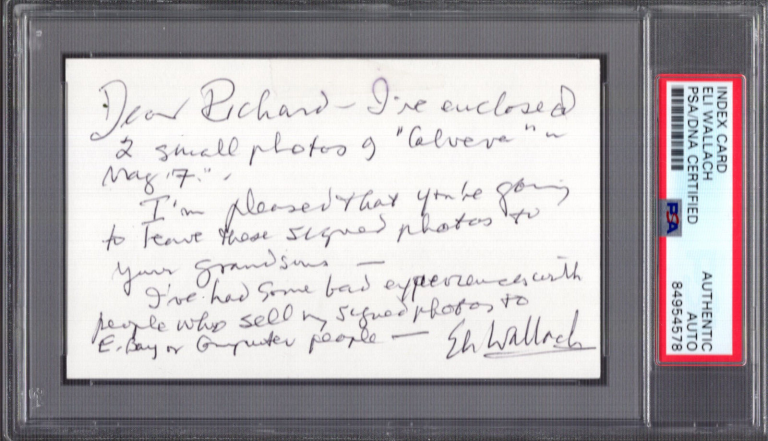 Dear Richard – I've enclosed
2 small photos of "Calvera" in
Mag 7."
I'm pleased that you're going
to leave these signed photos to
your grandsons —
I've had some bad experiences with
people who sell my signed photos to
E-Bay or Computer people —
Eli Wallach
INDEX CARD
ELI WALLACH
PSA/DNA CERTIFIED
PSA
AUTHENTIC
AUTO
84954578